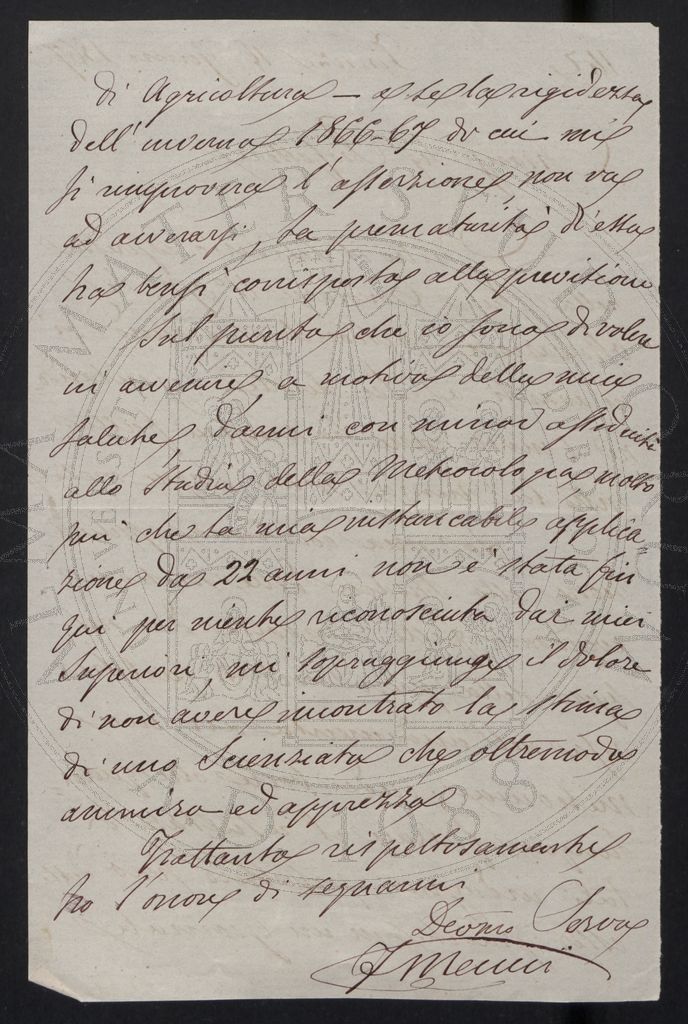 di Agricoltura – e se la rigidezza
dell'inverno 1866-67 di cui mi
si rimprovera l'asserzione, non va
ad avverarsi, la prematurità d'essa
ha bensì corrisposta alla previsione
Sul punto che io sono di volere
in avvenire a motivo della mia
salute, darmi con minor assiduità
allo studio della Meteorologia molto
più che la mia instancabile applica
zione da 22 anni non è stata fin
qui per niente riconosciuta dai miei
Superiori, mi sopraggiunge il dolore
di non avere incontrato la stima
di uno Scienziato che oltremodo
ammiro ed apprezzo
Frattanto rispettosamente
ho l'onore di segnarmi
Devotmo Servo
ALMA MATER STUDIORUM
A.D. 1088